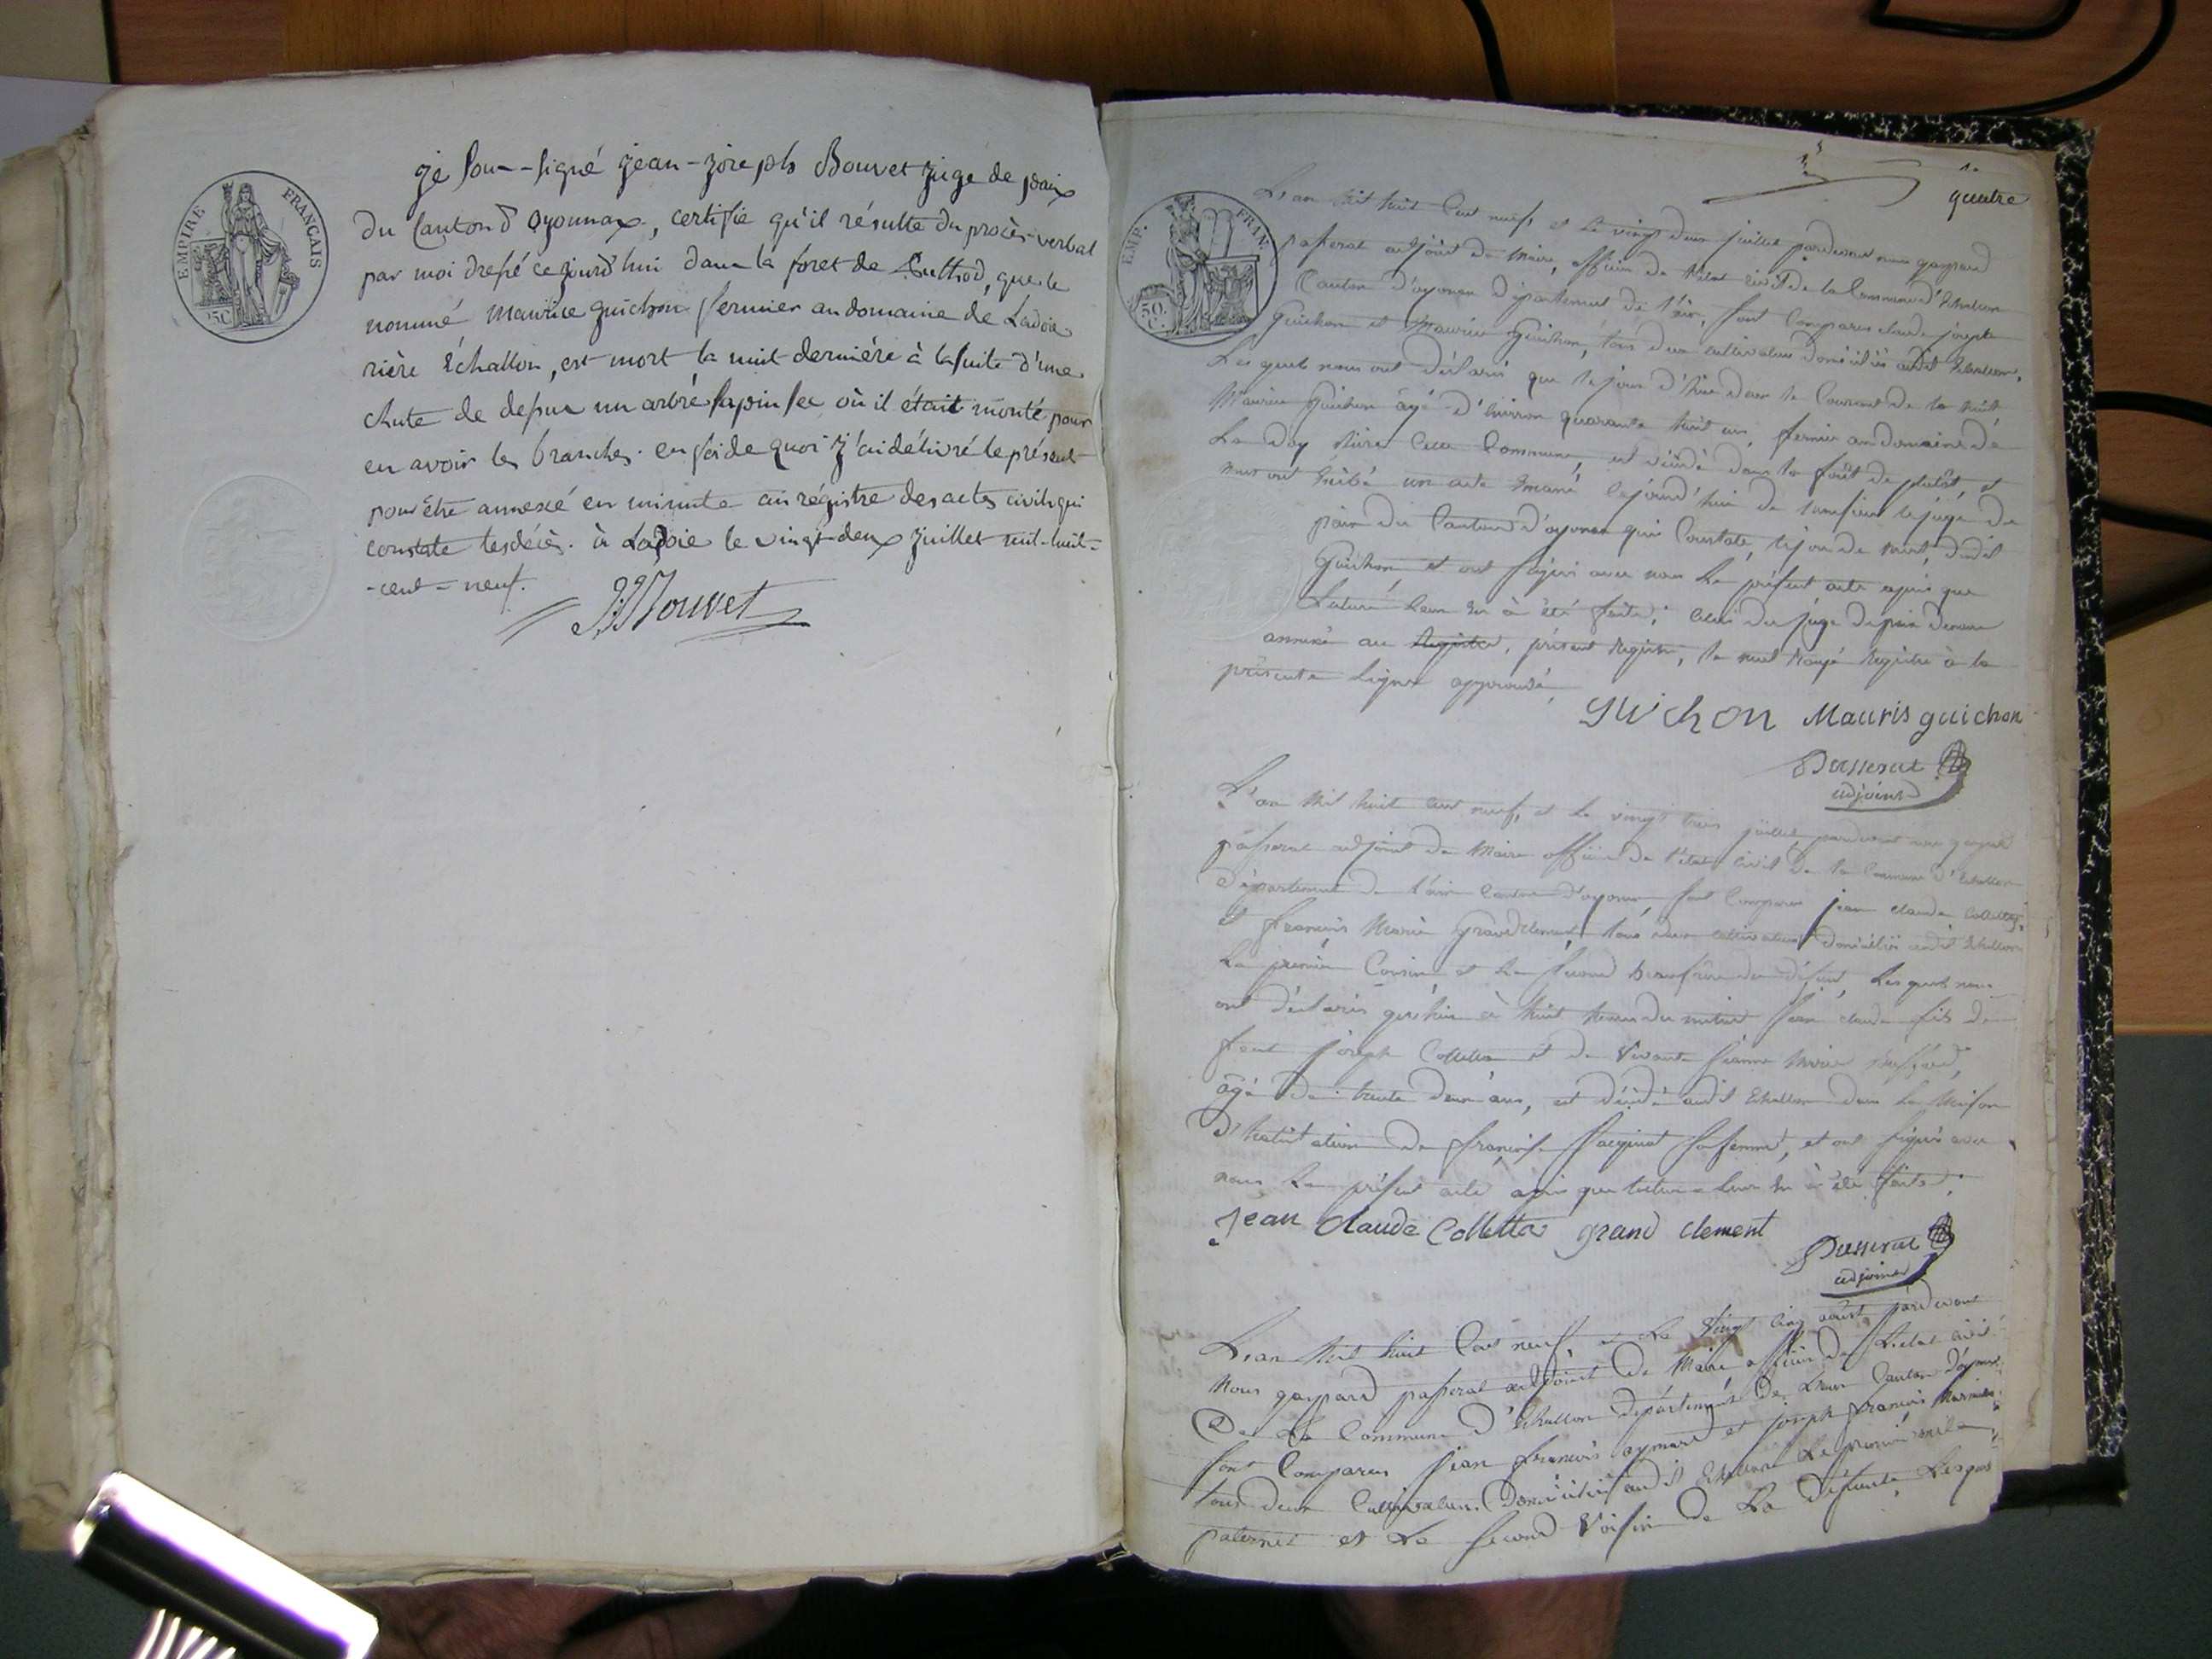 EMPIRE FRANÇAIS
25C
je Sous-signé jean-joseph Bouvet juge de paix
du Canton d'oyonnax, certifie qu'il résulte du procès-verbal
par moi dressé ce jourd'hui dans la foret de, que le
nommé Maurice guichon fermier au domaine de Ladoie
rière Échallon, est mort la nuit dernière à la suite d'une
chute de depus un arbre sapin sec où il était monté pour
en avoir les branches. en foi de quoi j'ai délivré le présent
pour être annexé en minute au régistre des actes civils qui
constate les décès. à Ladoie le vingt-deux juillet mil-huit-
-cent-neuf.
JJBouvet
quatre
EMP. FRAN.
50 C.
L'an mil huit Cent neuf, et le vingt deux juillet pardevant nous gaspard
passerat adjoint de Maire, officier de l'état civil de la Commune d'Echallon
Canton d'oyonax département de l'ain, sont Comparus claude joseph
Guichon et Maurice Guichon, tous deux cultivateurs domiciliés audit Echallon,
Lesquels nous ont déclaré que le jour d'hier dans le Courant de la nuit
Maurice Guichon âgé d'environ quarante huit ans, fermier au domaine de
La doy rière Cette Commune, est décédé dans la forêt de, et
nous ont exhibé un acte émané cejourd'hui de monsieur le juge de
paix du Canton d'oyonax qui Constate, le jour de mort dudit
Guichon et ont signés avec nous Le présent acte après que
Lecture Leur en à été faite; celui du juge de paix demeure
annexé au Registre, présent registre, le mot rayé registre à la
présente Ligne approuvé
GUichon Mauris guichon
Passerat
adjoint
L'an mil huit cent neuf, et le vingt trois juillet pardevant nous gaspard
passerat adjoint de Maire officier de l'état civil de la Commune d'Echallon
département de l'ain Canton d'oyonax sont Comparus jean claude Collettaz
et françois Marie Grandclement tous deux cultivateurs domiciliés audit Echallon
Le premier Cousin et Le second beaufrère du défunt, Lesquels nous
ont déclarés qu'hier à huit heures du matin jean claude fils de
feu joseph Collettaz et de vivante jeanne Marie,
âgé de trente deux ans, est décédé audit Echallon dans La Maison
d'habitation de françoise sa femme, et ont signés avec
nous Le présent acte après que lecture Leur en à été faite.
jean claude Collettaz grand clement
Passerat
adjoint
L'an mil huit Cent neuf, et Le vingt Cinq août pardevant
nous gaspard passerat adjoint de Maire officier de L'état civil
De La Commune d'Echallon département de L'ain Canton d'oyonax
sont Comparus jean françois aymard et joseph françois
tous deux Cultivateurs Domiciliés audit Echallon Le premier oncle
paternel et Le second voisin de La défunte, Lesquels